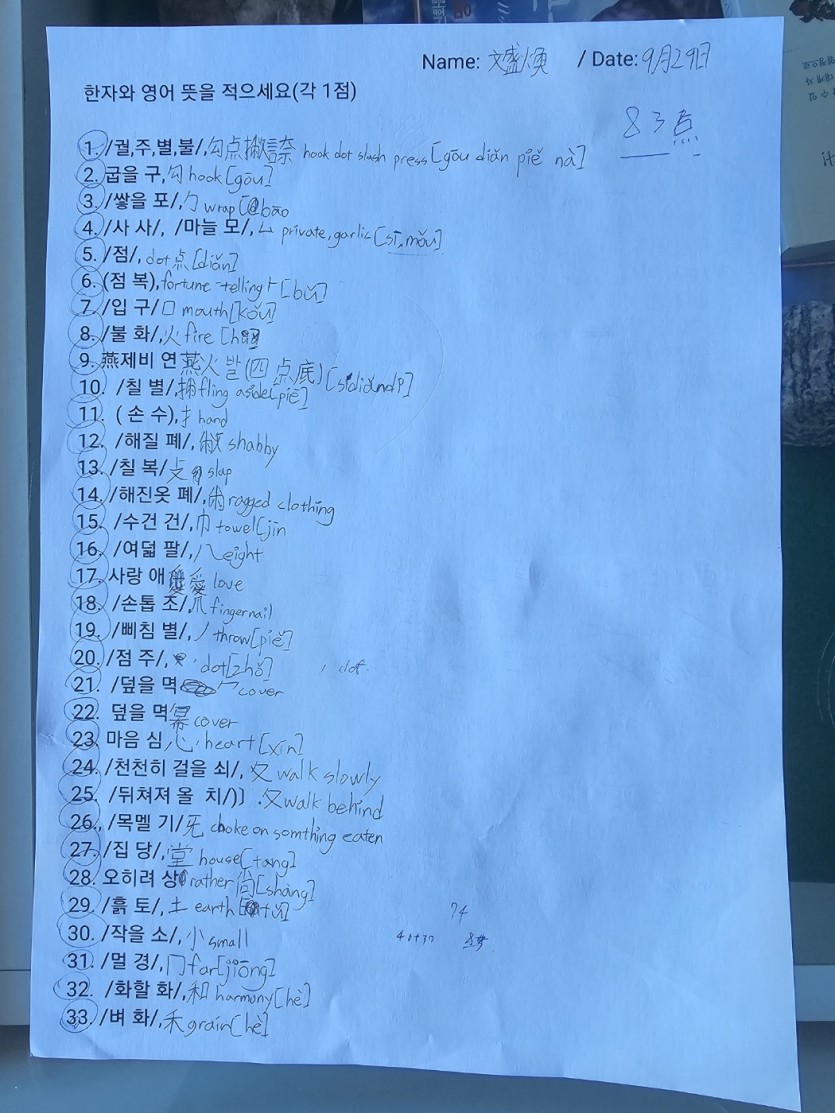 Name: 文盛煥 / Date: 9月29日
한자와 영어 뜻을 적으세요(각 1점)
83点
1. /궐,주,별,불/, 勾点撇 hook dot slash press [gōu diǎn piě nà]
2. 굽을 구, 勾 hook [gōu]
3. /쌓을 포/, 勹 wrap bāo
4. /사 사/, /마늘 모/, 厶 private, garlic [sī, mǒu]
5. /점/, dot 点 [diǎn]
6. (점 복), fortune-telling 卜 [bǔ]
7. /입 구/ 口 mouth [kǒu]
8. /불 화/, 火 fire
9. 燕제비 연 燕火발 (四点底)
10. /칠 별/, fling aside [piē]
11. ( 손 수), 扌 hand
12. /해질 폐/, 敝 shabby
13. /칠 복/ 攴 slap
14. /해진옷 폐/, ragged clothing
15. /수건 건/, 巾 towel [jīn
16. /여덟 팔/, 八 eight
17. 사랑 애 愛 love
18. /손톱 조/, 爪 fingernail
19. /삐침 별/, 丿 throw [piě]
20. /점 주/, 丶 dot [zhǔ] , dot.
21. /덮을 멱 冖 cover
22. 덮을 멱 冪 cover
23. 마음 심, 心 heart [xīn]
24. /천천히 걸을 쇠/, 夊 walk slowly
25. /뒤쳐져 올 치/)〕. 夂 walk behind
26., /목멜 기/ 旡 choke on somthing eaten
27. /집 당/, 堂 house [tang]
28. 오히려 상 rather 尙 [shàng]
29. /흙 토/, 土 earth
74
30. /작을 소/, 小 small
40+37
31. /멀 경/, 冂 far [jiōng]
32. /화할 화/, 和 harmony [hè]
33. /벼 화/, 禾 grain [hè]